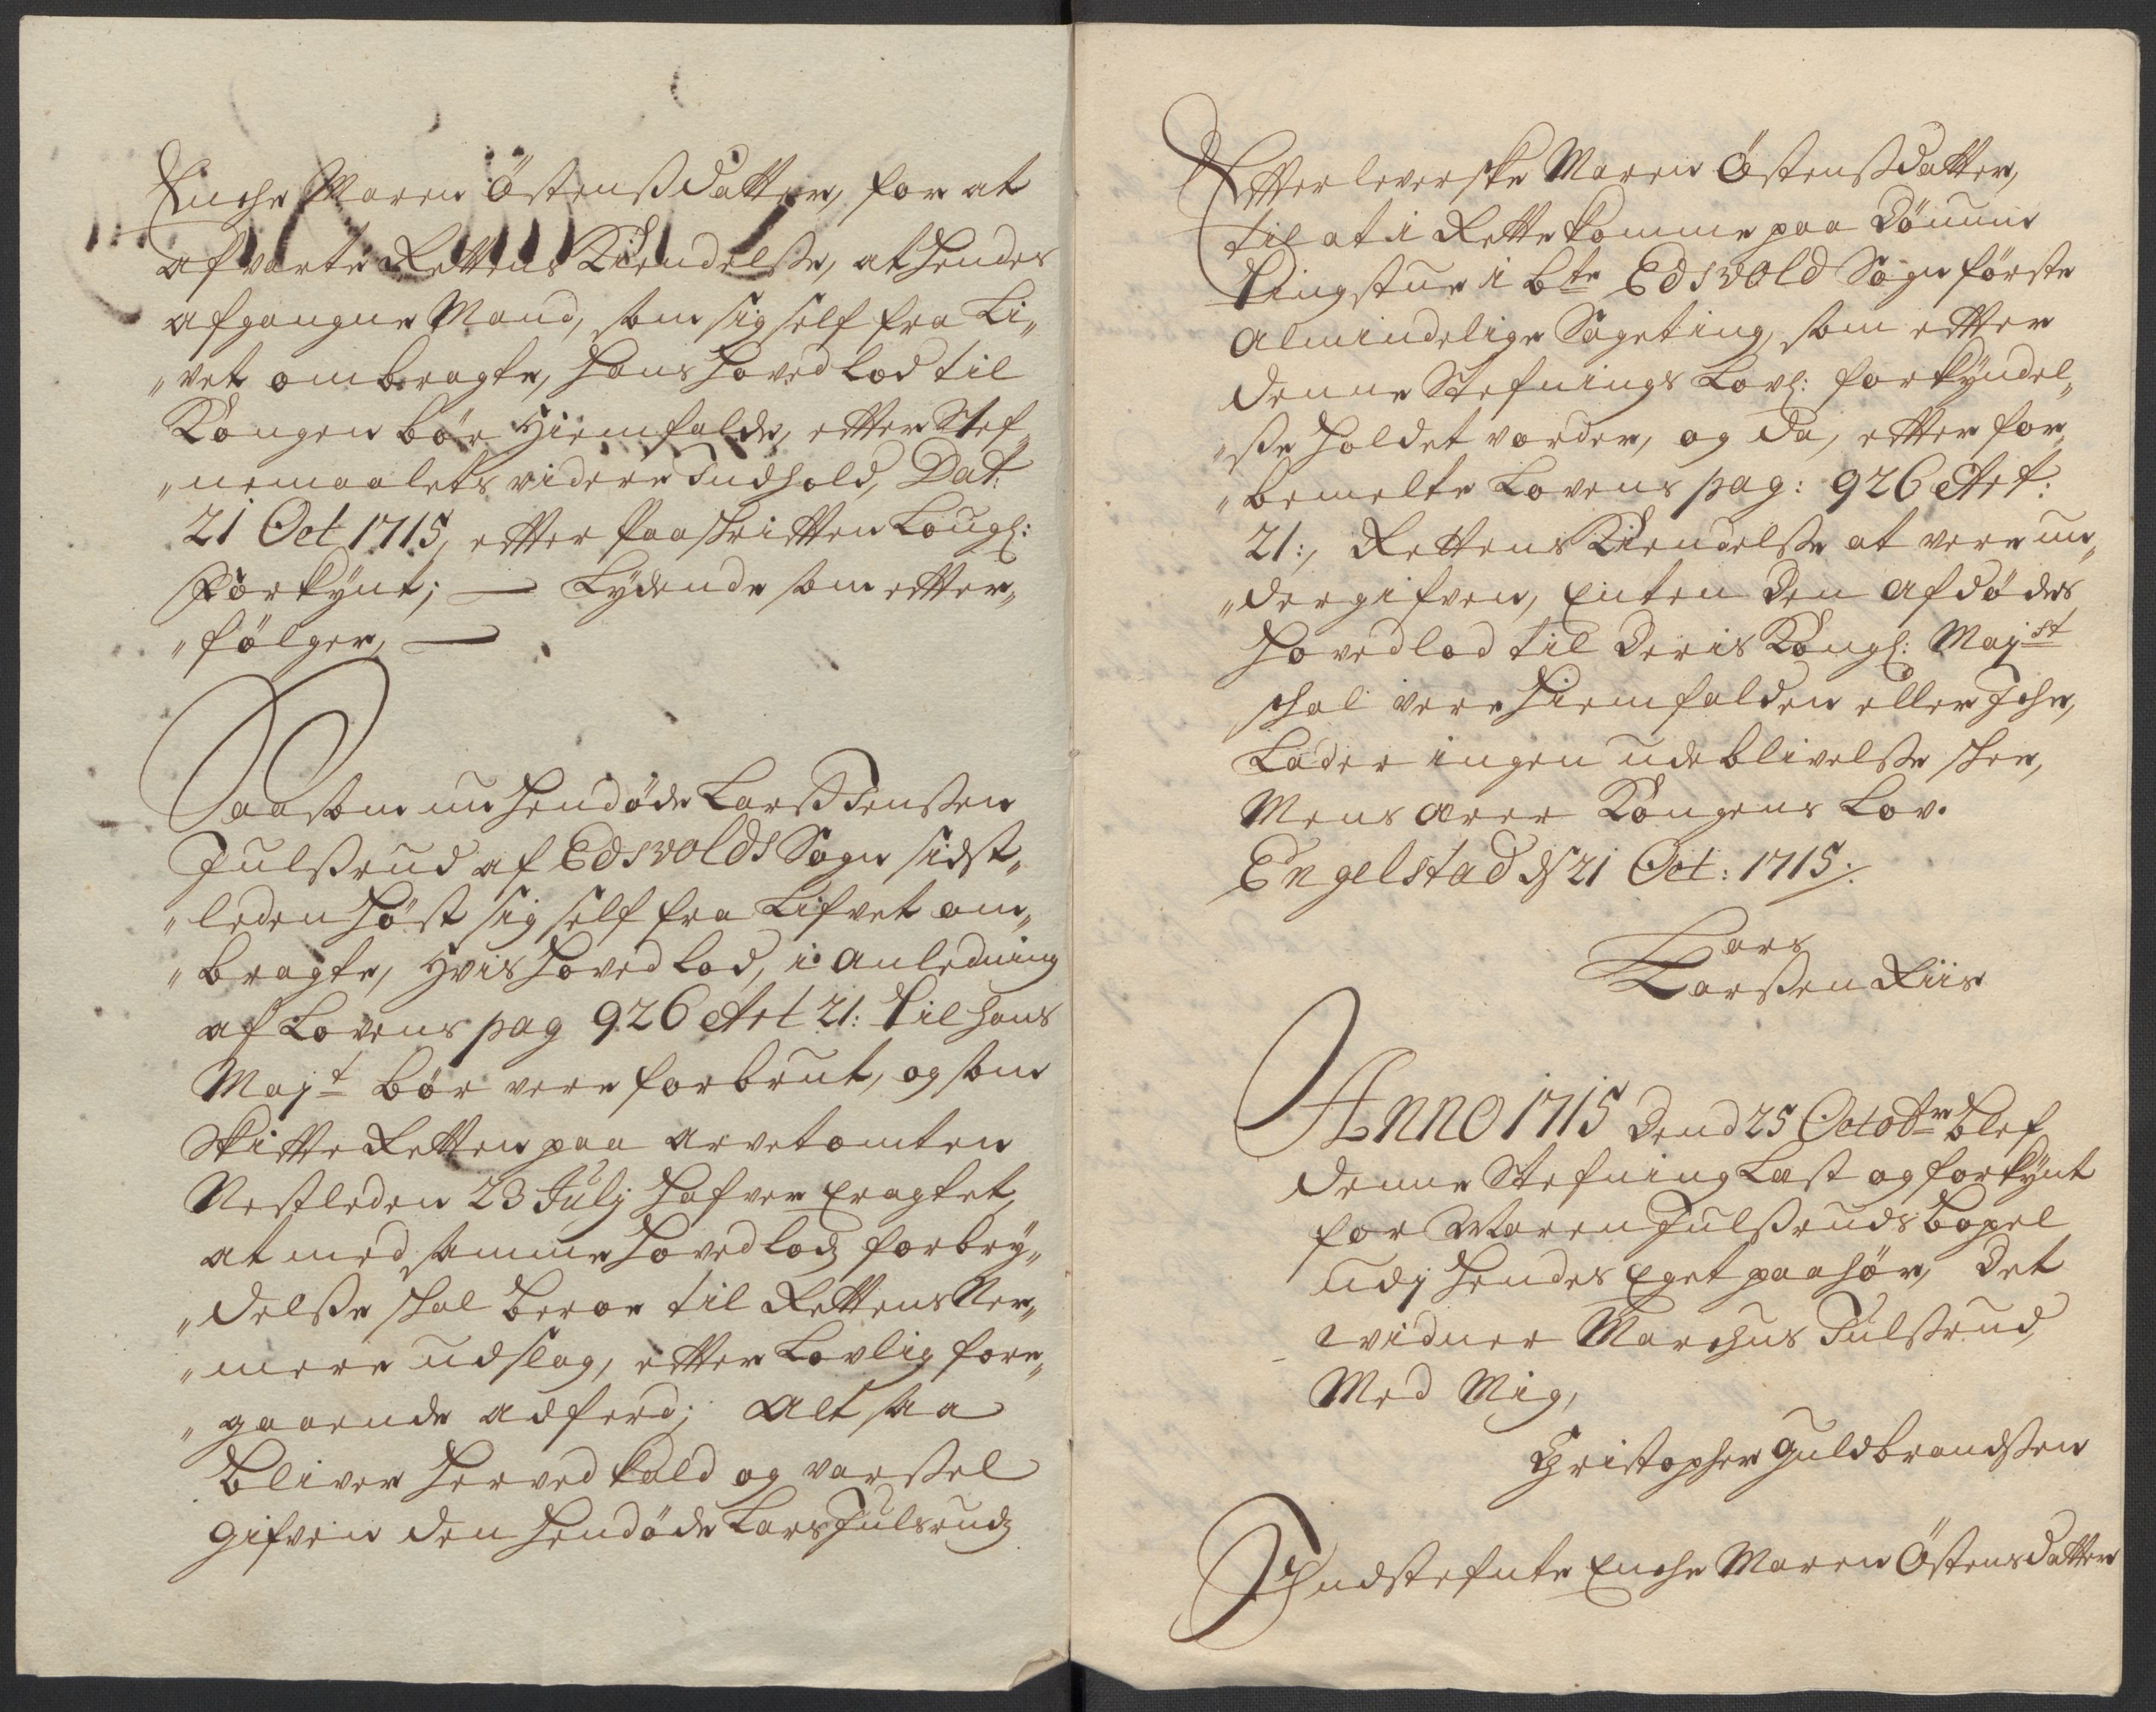 Enche Maren Östensdatter, for at
afvarte Rettens Kiendelsse, at hendes
afgangne Mand, som sig self fra Li„
„vet ombragte, hans hoved Lod til
Kongen bör hiemfalde, etter Stef„
„nemaalets videre Indhold, Dat:
21 Oct 1715, etter Paaskritten Lougl:
Forkynt; — Lydende som etter„
„fölger, —
Saasom nu hendöde Larss Jenssen
Julssrud af Edsvolds Sogn sidst„
„leden Höst sig self fra Lifvet om„
„bragte, hvis hoved Lod, i anledning
af Lovens pag 926 Art 21: Til hans
Majt bör vere forbrut, og som
Skitte Retten paa arvetomten
Nestleden 23 Julj hafver Eragtet,
at med samme Hovedlodz forbry„
„delsse skal beroe til Rettens Ner„
„mere udslag, etter Lovlig fore„
„gaaende adferd; Alt saa
bliver herved kald og varssel
gifven den hendöde Lars Julsrudz
Etterleverske Maren Östenssdatter,
til at i Rette komme paa Dönnum
Tingstue i bte Edsvold Sogn förste
Almindelige Sageting, som etter
denne Stefnings Lovl: forkyndel„
„sse holdet vorder, og da, etter for„
„bemelte Lovens pag: 926 Art:
21:, Rettens Kiendelsse at vere un„
„dergifven, Enten den afdödes
Hovedlod til Deris Kongl: Majst
skal vere hiemfalden eller Iche,
Lader ingen udeblivelsse skee,
Mens ærer Kongens Lov.
Engelstad d 21 Oct: 1715.
Lars
Larssen Riis
Anno 1715 Dend 25 Octobr blef
denne Stefning Læst og forkynt
for Maren Julssruds bopel
udj hendes Eget paahör, Det
vidner Marchus Julssrud,
Med Mig,
Christopher Guldbrandssen
Indstefnte Enche Maren Östensdatter